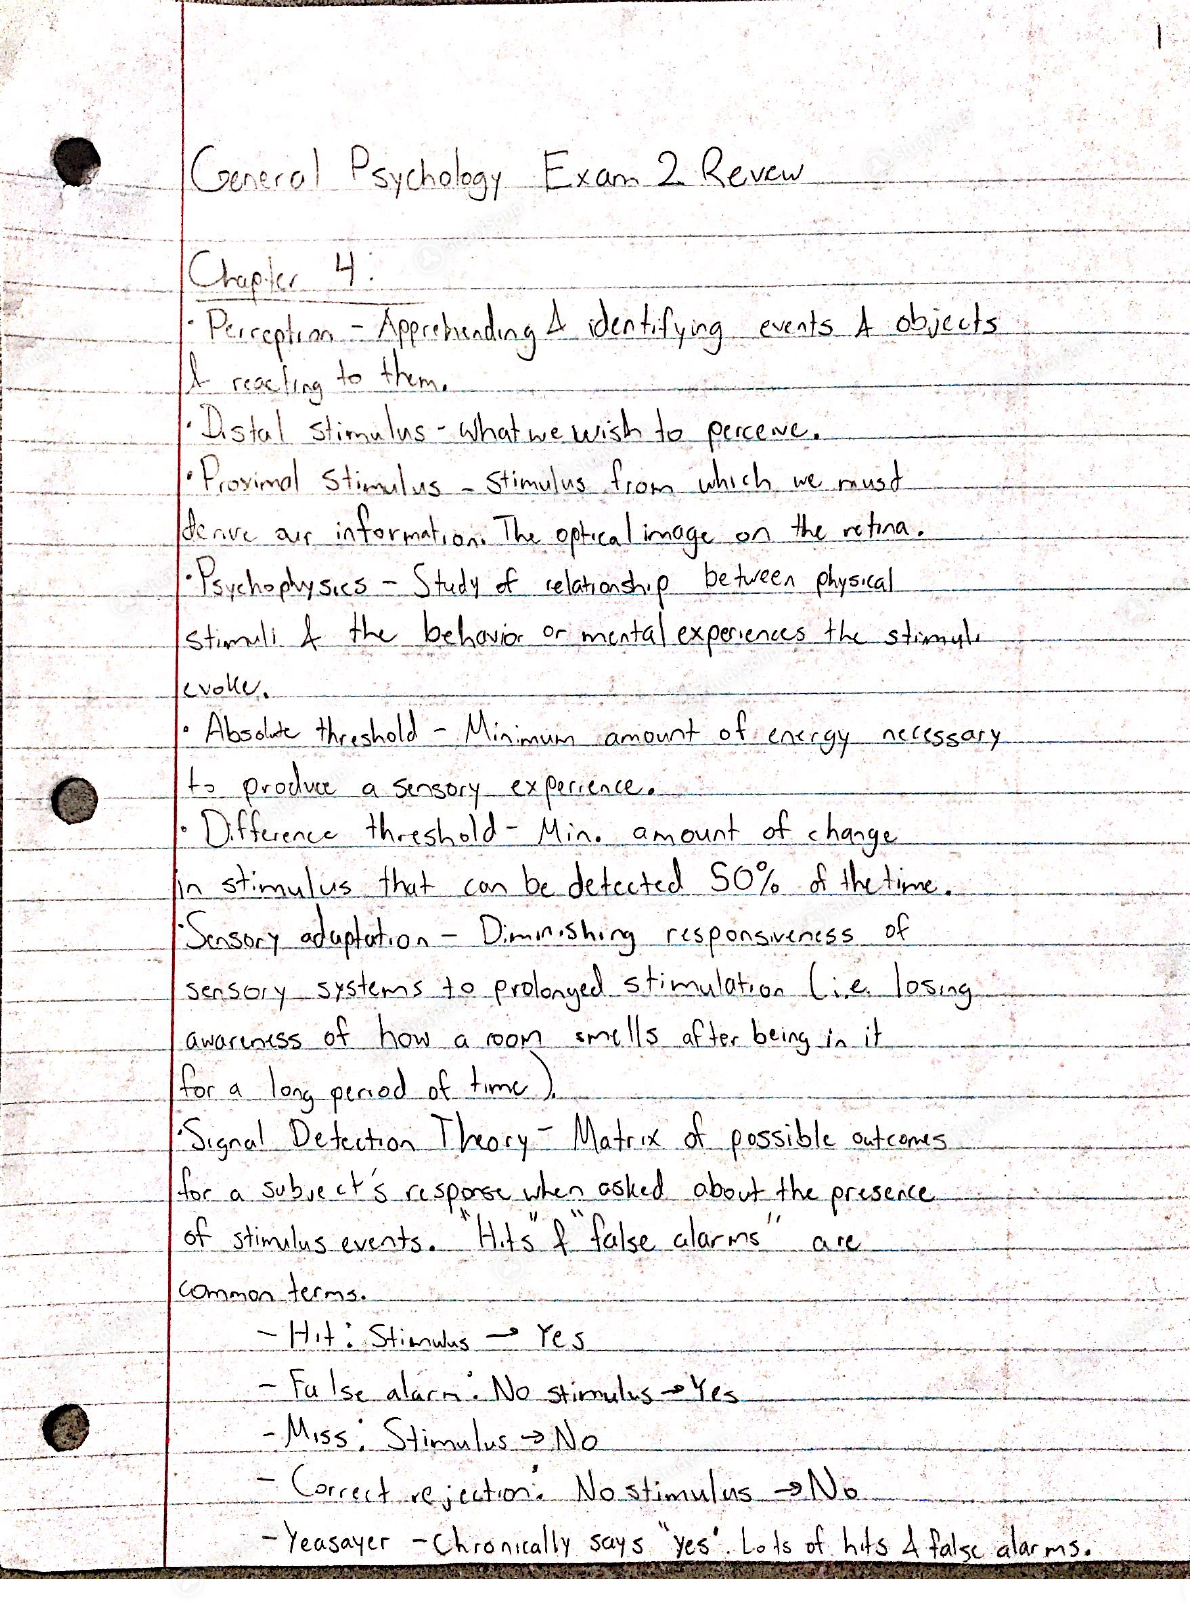 1
General Psychology Exam 2 Revew
Chapter 4:
· Perception - Apprehending & identifying events & objects
& reacting to them.
· Distal stimulus - what we wish to perceive.
· Proximal stimulus - stimulus from which we must
derive our information. The optical image on the retina.
· Psychophysics - Study of relationship between physical
stimuli & the behavior or mental experiences the stimuli
evoke.
· Absolute threshold - Minimum amount of energy necessary
to produce a sensory experience.
· Difference threshold - Min. amount of change
in stimulus that can be detected 50% of the time.
· Sensory adaptation - Diminishing responsiveness of
sensory systems to prolonged stimulation (i.e. losing
awareness of how a room smells after being in it
for a long period of time).
· Signal Detection Theory - Matrix of possible outcomes
for a subject's response when asked about the presence
of stimulus events. "Hits" & "false alarms" are
common terms.
- Hit: Stimulus → Yes
- False alarm: No stimulus → Yes
- Miss: Stimulus → No
- Correct rejection: No stimulus → No
- Yeasayer - Chronically says "yes". Lots of hits & false alarms.